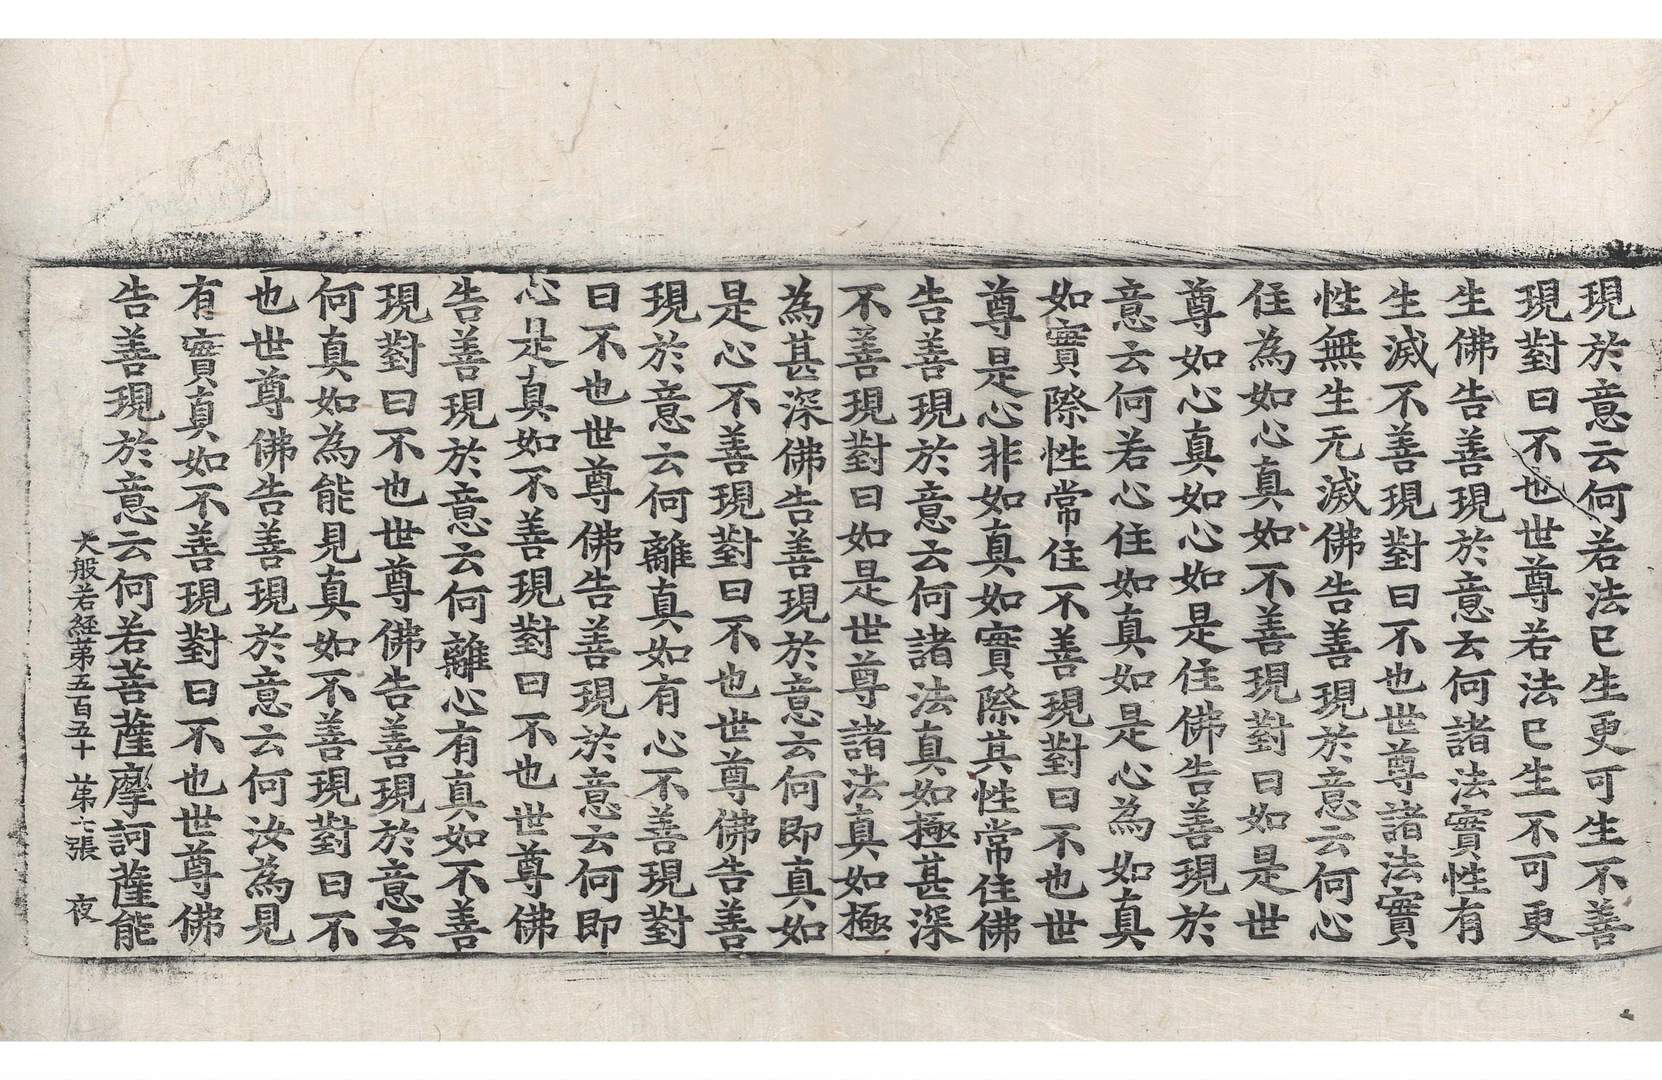 現於意云何若法已生更可生不善
現對曰不也世尊若法已生不可更
生佛告善現於意云何諸法實性有
生滅不善現對曰不也世尊諸法實
性無生无滅佛告善現於意云何心
住為如心真如不善現對曰如是世
尊如心真如心如是住佛告善現於
意云何若心住如真如是心為如真
如實際性常住不善現對曰不也世
尊是心非如真如實際其性常住佛
告善現於意云何諸法真如極甚深
不善現對曰如是世尊諸法真如極
為甚深佛告善現於意云何即真如
是心不善現對曰不也世尊佛告善
現於意云何離真如有心不善現對
曰不也世尊佛告善現於意云何即
心是真如不善現對曰不也世尊佛
告善現於意云何離心有真如不善
現對曰不也世尊佛告善現於意云
何真如為能見真如不善現對曰不
也世尊佛告善現於意云何汝為見
有實真如不善現對曰不也世尊佛
告善現於意云何若菩薩摩訶薩能
大般若経第五百五十 苐七張 夜